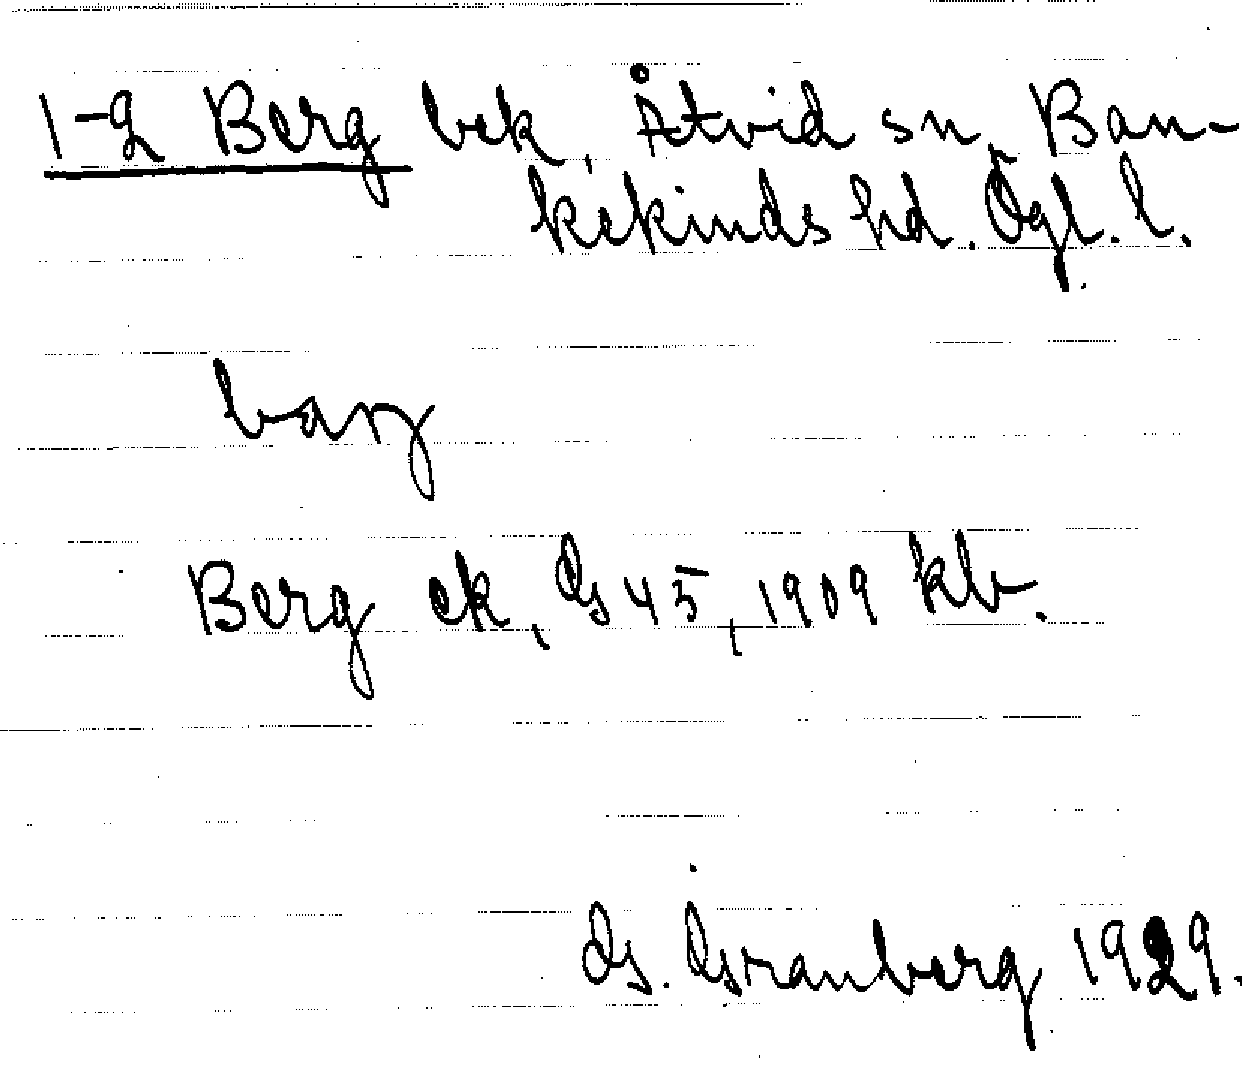 1-2 Berg bek, Åtvid sn, Ban-
kekinds hd. Ögl. l.
barg
Berg ek, GS 45, 1909 kb.
G. Granberg 1929.